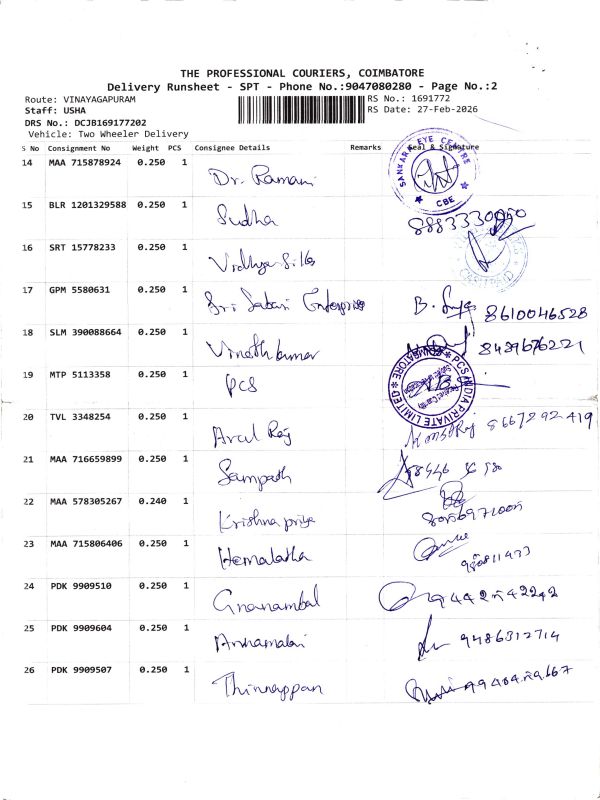 THE PROFESSIONAL COURIERS, COIMBATORE
Delivery Runsheet - SPT - Phone No.:9047080280 - Page No.:2
Route: VINAYAGAPURAM RS No.: 1691772
Staff: USHA RS Date: 27-Feb-2026
DRS No.: DCJB169177202
Vehicle: Two Wheeler Delivery
S No Consignment No Weight PCS Consignee Details Remarks Seal & Signature
14 MAA 715878924 0.250 1 Dr. Ramani SANKARA EYE CENTRE CBE
15 BLR 1201329588 0.250 1 Sudha
16 SRT 15778233 0.250 1 Vidhya Silks
17 GPM 5580631 0.250 1 Sri Sabari Enterprises B. 8610046528
18 SLM 390088664 0.250 1 Vinoth kumar 8489676221
19 MTP 5113358 0.250 1 PCS PCS INDIA PRIVATE LIMITED COIMBATORE
20 TVL 3348254 0.250 1 Arul Raj 8667292419
21 MAA 716659899 0.250 1 Sampath
22 MAA 578305267 0.240 1 Krishna priya
23 MAA 715806406 0.250 1 Hemalatha
24 PDK 9909510 0.250 1 Gnanambal 9442542292
25 PDK 9909604 0.250 1 Annamalai 9486312714
26 PDK 9909507 0.250 1 Thinnappan